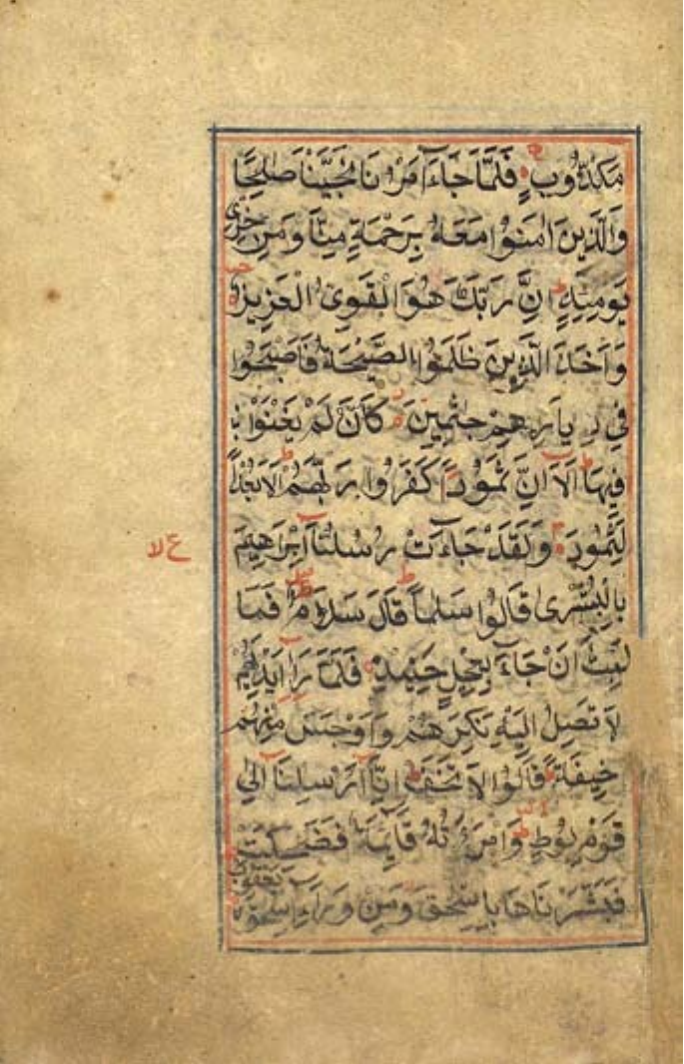 مَكْذُوبٍ فَلَمَّا جَاءَ اَمْرُنَا نَجَّيْنَا صَالِحًا
وَالَّذِينَ اٰمَنُوا مَعَهُ بِرَحْمَةٍ مِنَّا وَمِنْ خِزْىِ
يَوْمِئِذٍ اِنَّ رَبَّكَ هُوَ الْقَوِىُّ الْعَزِيزُ
وَاَخَذَ الَّذِينَ ظَلَمُوا الصَّيْحَةُ فَاَصْبَحُوا
فِى دِيَارِهِمْ جٰثِمِينَ كَاَنْ لَمْ يَغْنَوْا
فِيهَا اَلَا اِنَّ ثَمُودَا كَفَرُوا رَبَّهُمْ اَلَا بُعْدًا
لِثَمُودَ وَلَقَدْ جَاءَتْ رُسُلُنَا اِبْرٰهِيمَ
ع لا
بِالْبُشْرٰى قَالُوا سَلٰمًا قَالَ سَلَامٌ فَمَا
لَبِثَ اَنْ جَاءَ بِعِجْلٍ حَنِيذٍ فَلَمَّا رَاٰ اَيْدِيَهُمْ
لَا تَصِلُ اِلَيْهِ نَكِرَهُمْ وَاَوْجَسَ مِنْهُمْ
خِيفَةً قَالُوا لَا تَخَفْ اِنَّا اُرْسِلْنَا اِلٰى
قَوْمِ لُوطٍ وَامْرَاَتُهُ قَائِمَةٌ فَضَحِكَتْ
فَبَشَّرْنَاهَا بِاِسْحٰقَ وَمِنْ وَرَاءِ اِسْحٰقَ يَعْقُوبَ